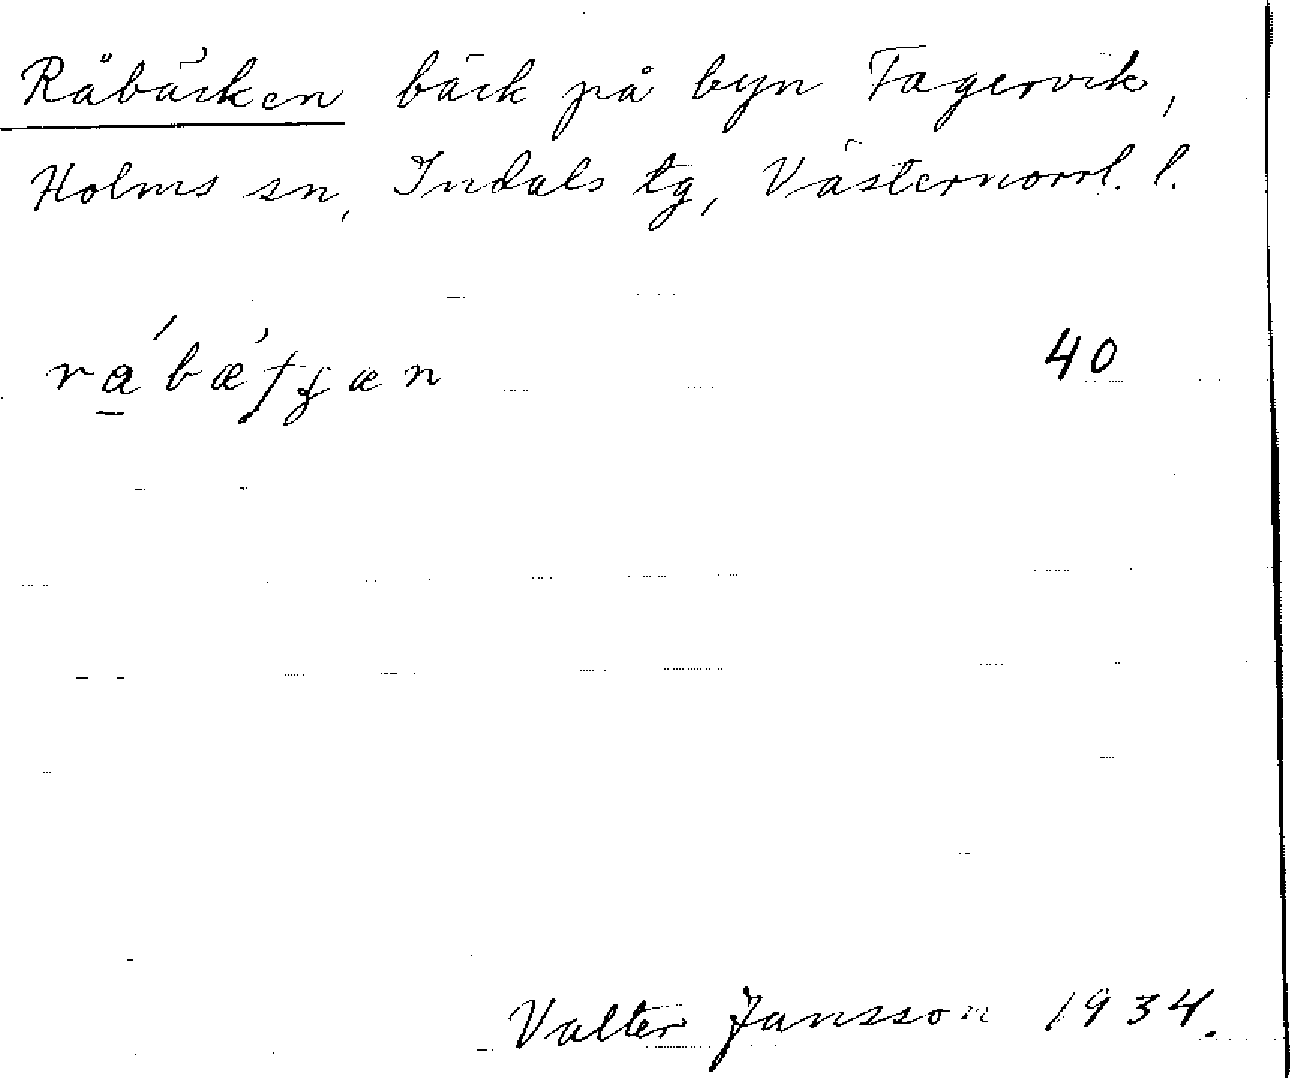 Råbäcken bäck på byn Fagervik,
Holms sn, Indals tg, Västernorrl. l.
40
Valter Jansson 1934.